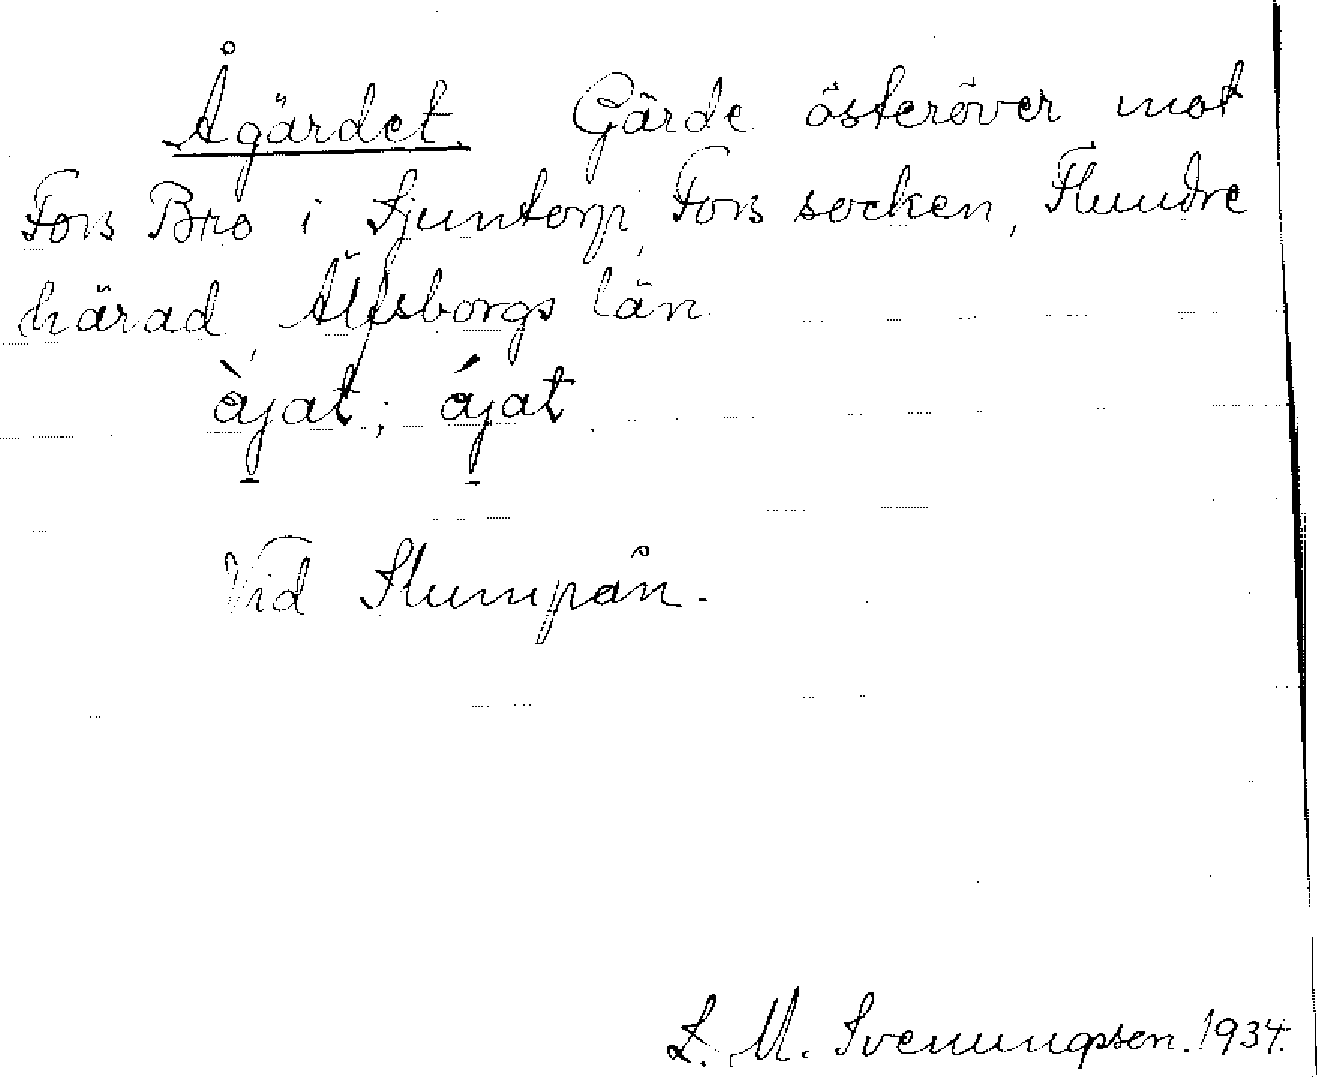 Ågärdet. Gärde österöver mot
Fors Bro i Sjuntorp, Fors socken, Flundre
härad, Älvsborgs län
åjat; åjat
Vid Slumpån.
L. M. Svenungsson. 1934.